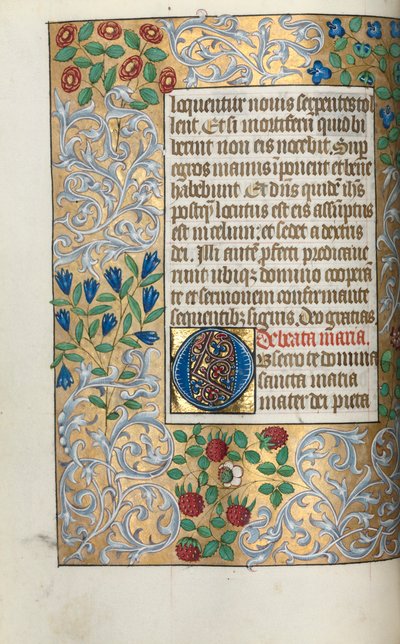 loquentur nouis serpentes tol
lent. Et si mortiferu quid bi
berint non eis nocebit. Sup
egros manus iponent et bene
habebunt. Et dns quide ihs
postq locutus est eis assuptus
est in celum: et sedet a dextris
dei. Illi aute pfecti predicaue
runt ubiq domino coopera
te et sermonem confirmante
sequentibus signis. Deo gratias
De beata maria.
Obsecro te domina
sancta maria
mater dei pieta